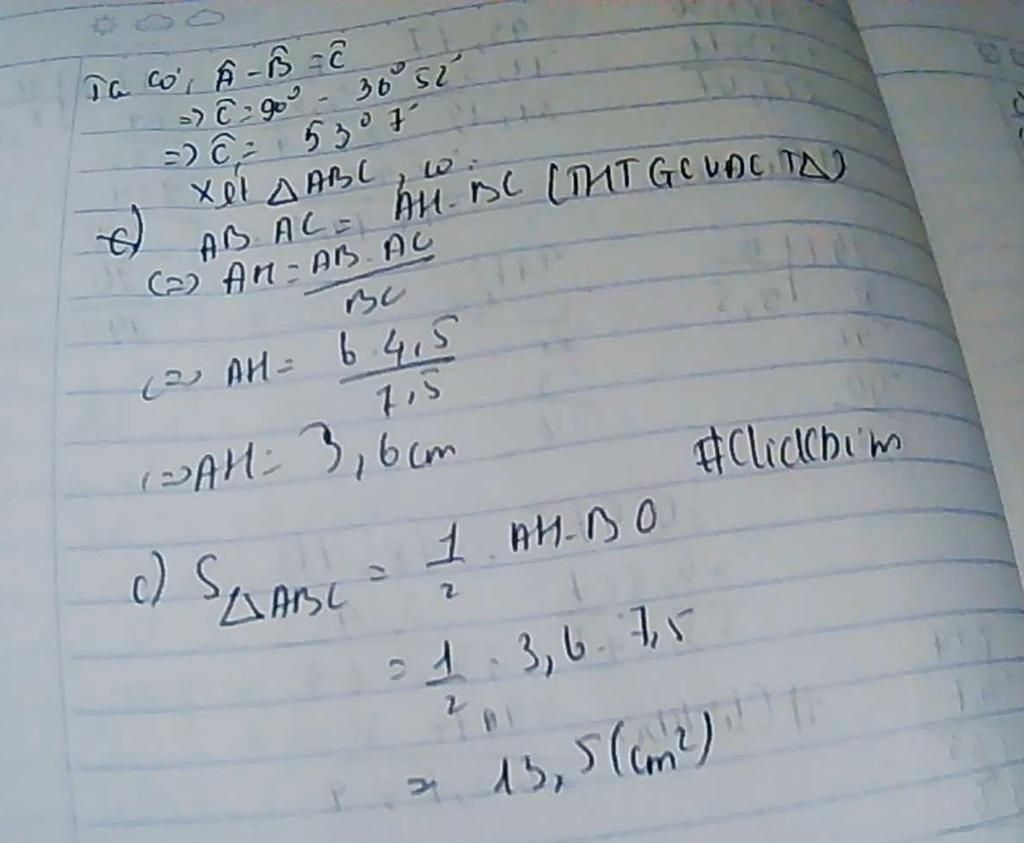 Ta có, Â - B̂ = Ĉ
=> Ĉ = 90° - 36° 52'
=> Ĉ = 53° 7'
Xét △ABC, có:
c) AB. AC = AH. BC (THTGCVĐC.T△)
(=> AH = AB. AC / BC
(=> AH = 6.4,5 / 7,5
(=> AH = 3,6cm
#ClickbIm
c) S△ABC = 1/2 . AH. B0
= 1/2 . 3,6. 7,5
= 13,5(cm²)